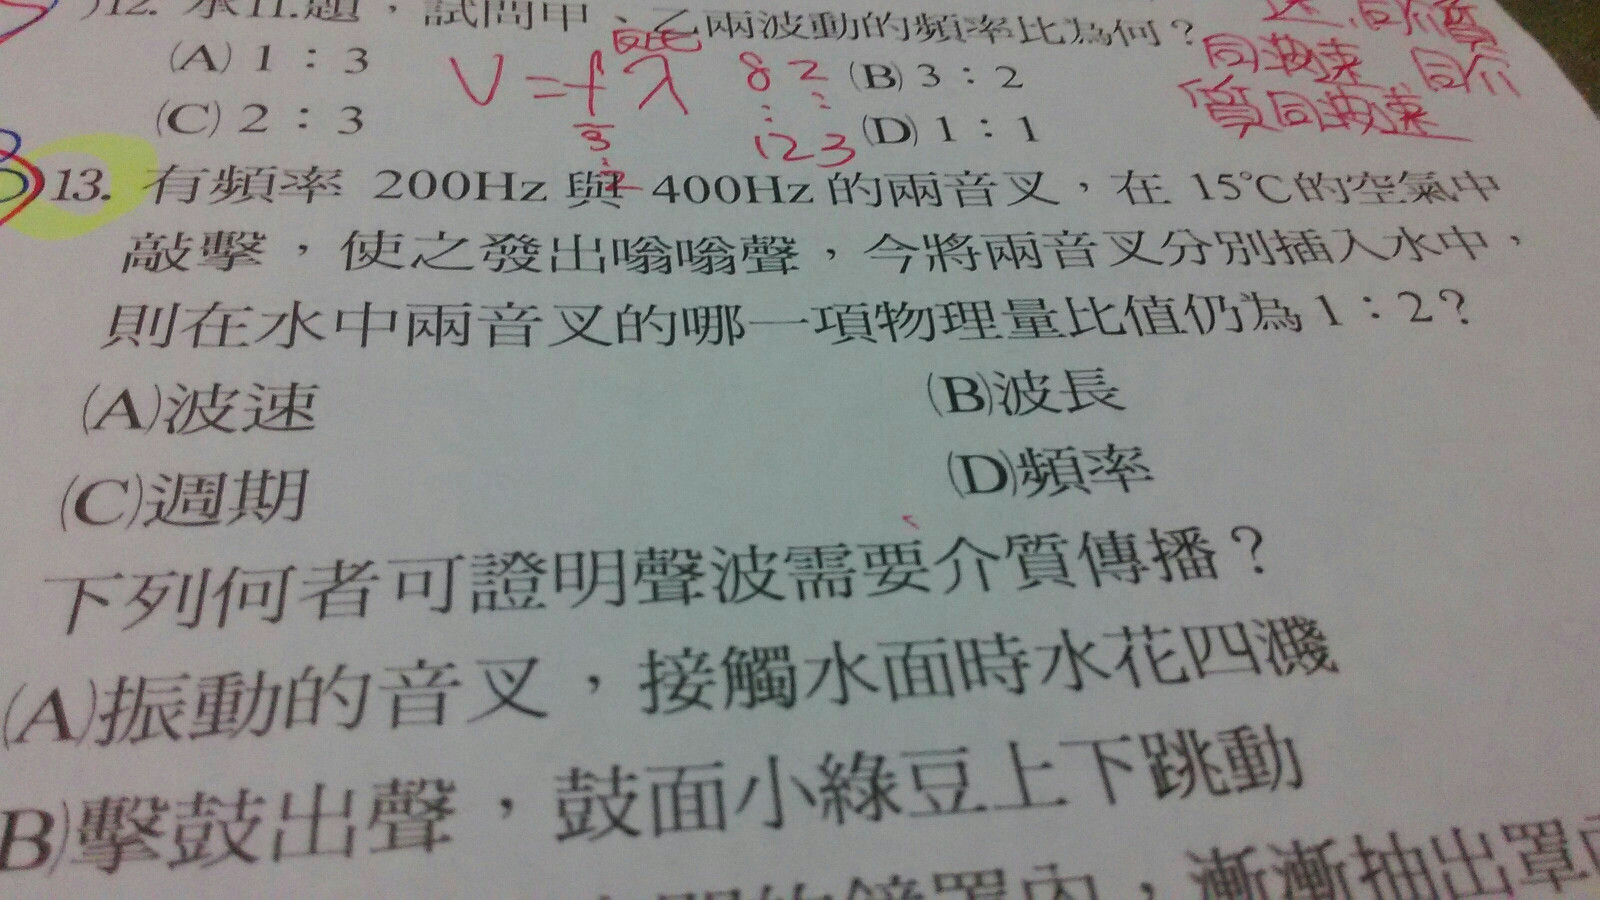 12. 承11.題，試問甲、乙兩波動的頻率比為何？
(A) 1：3
V = fλ
8 2
(B) 3：2
同波速
同介
質同波速
(C) 2：3
3
：
2
：：
12 3
(D) 1：1
13. 有頻率 200Hz 與 400Hz 的兩音叉，在 15℃的空氣中
敲擊，使之發出嗡嗡聲，今將兩音叉分別插入水中，
則在水中兩音叉的哪一項物理量比值仍為 1：2？
(A)波速
(B)波長
(C)週期
(D)頻率
下列何者可證明聲波需要介質傳播？
(A)振動的音叉，接觸水面時水花四濺
B)擊鼓出聲，鼓面小綠豆上下跳動
的鐘罩內，漸漸抽出罩內